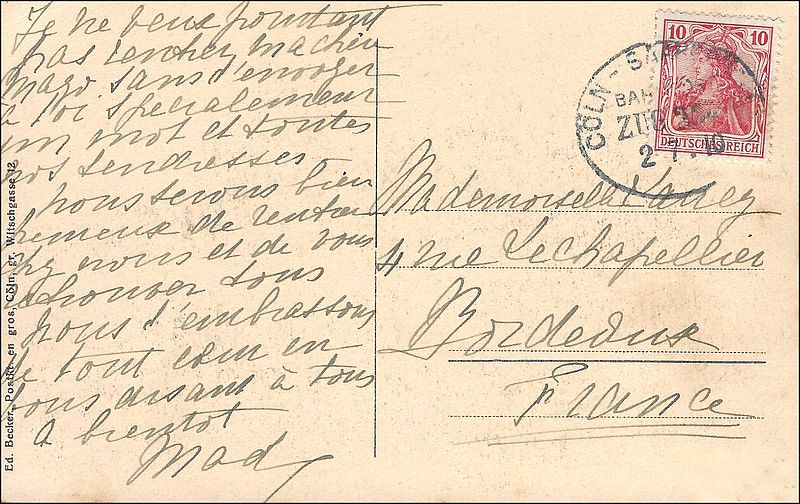 Je ne veux pourtant
pas
Mago sans t'envoyer
à toi spécialement
un mot et toutes
nos tendresses
nous serons bien
heureux de rentrer
chez nous et de vous
retrouver tous
nous t'embrassons
de tout cœur en
vous disant à tous
à bientot
Mad
Ed. Becker, Postk. en gros, Cöln, gr. Witschgasse 12
10 10
DEUTSCHES REICH
CÖLN -
BAH
ZUG
2 7 10
Mademoiselle
4 rue Lechapellier
Bordeaux
France